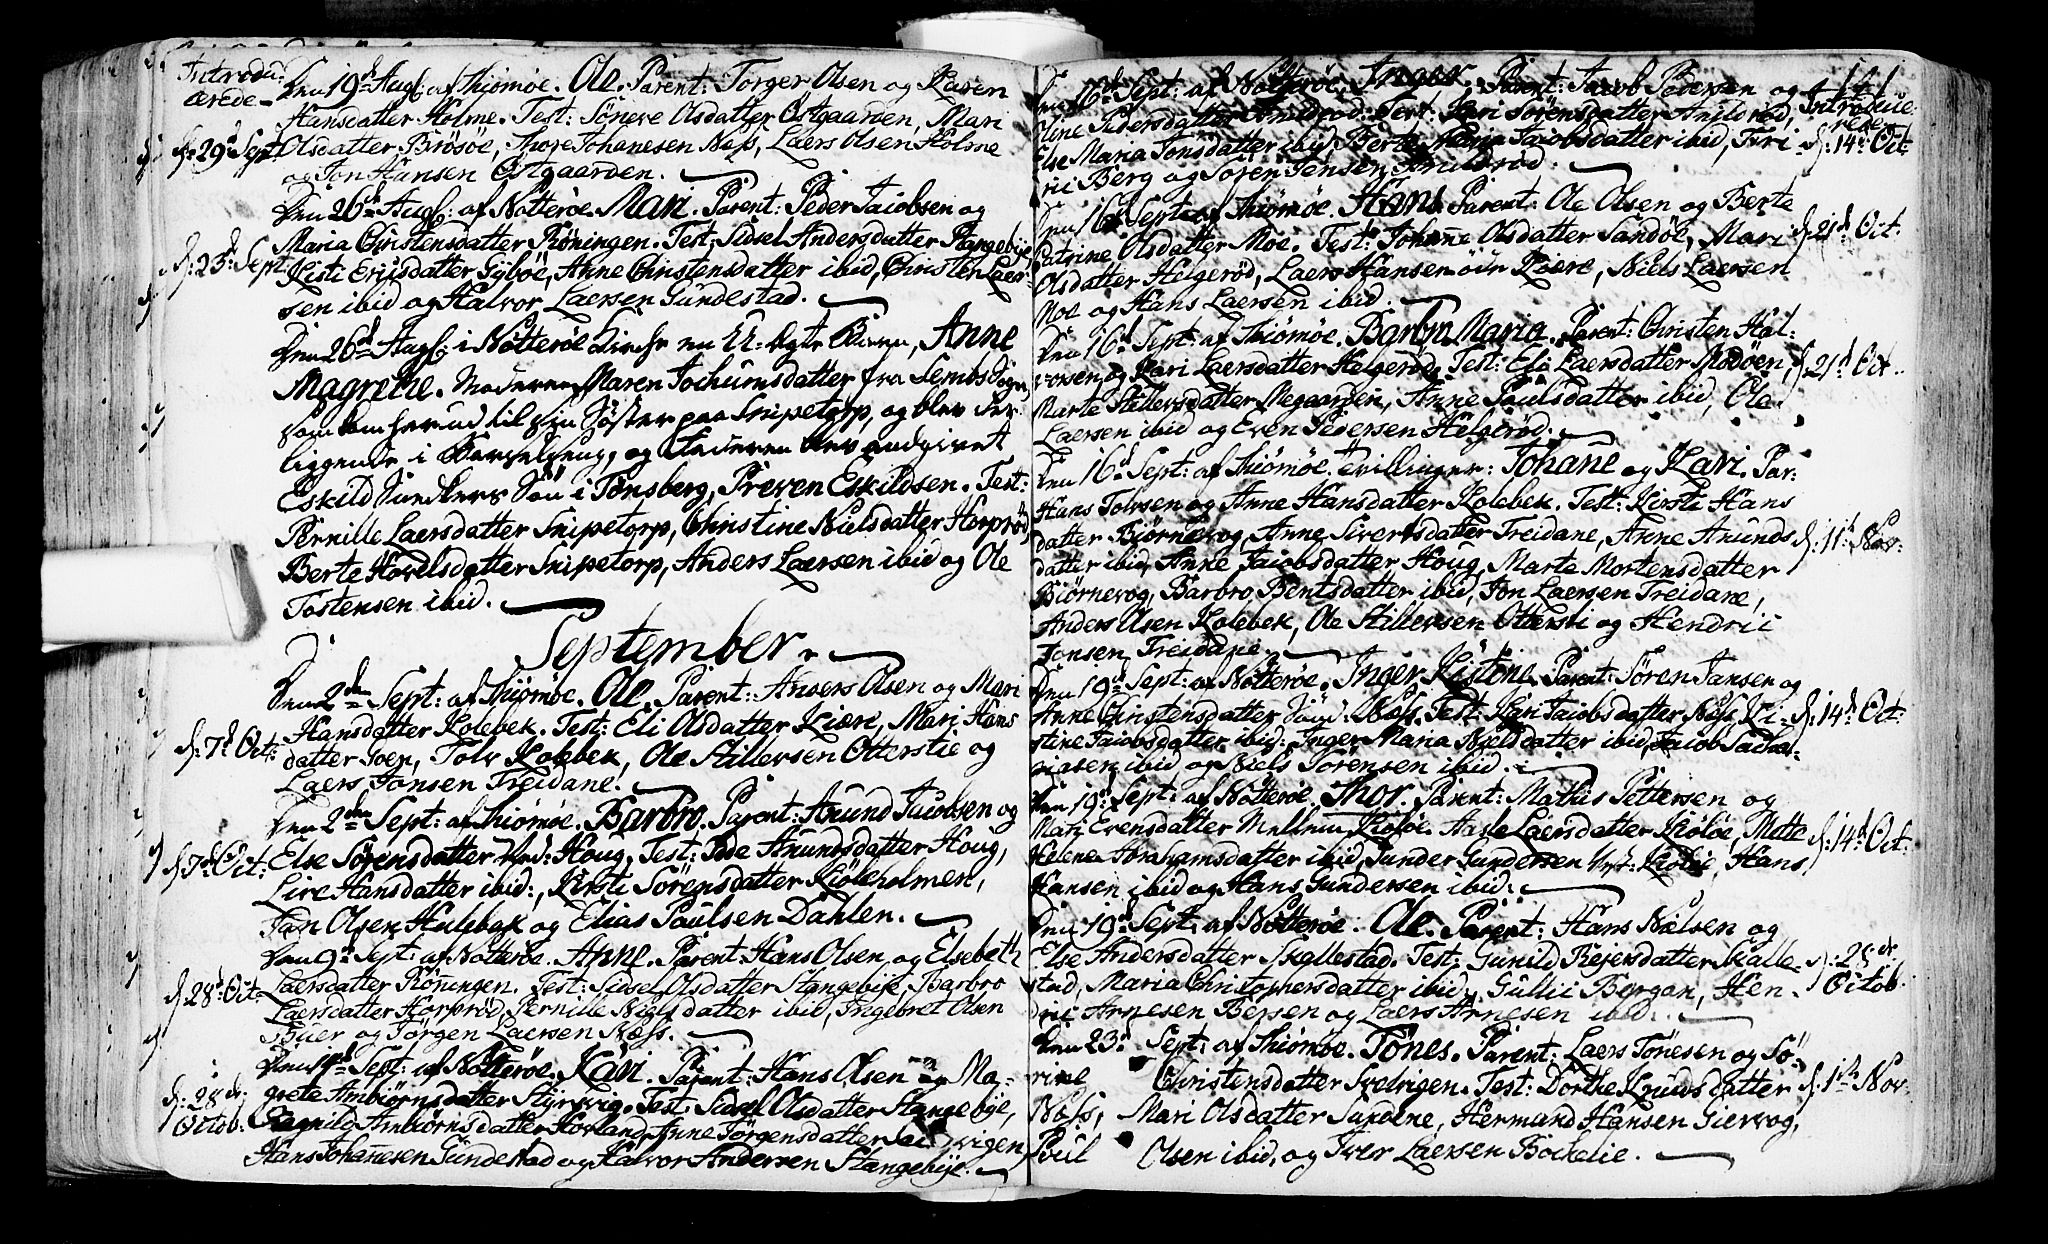 Introdu-
cerede
Den 19d Aug: af Thiømøe. Ole. Parent: Torger Olsen og Karen
Hansdatter Holme. Test: Søneve Olsdatter Østgaarden, Mari
d: 29d Sept: Olsdatter Brøsøe, Thore Johanesen Næss, Laers Olsen Holme
og Jon Hansen Østgaarden.
Den 26d Aug: af Nøtterøe Mari. Parent: Peder Jacobsen og
Maria Christensdatter Røningen. Test: Sidsel Andersdatter Stangebye
d: 23d Sept: Kisti Ericsdatter Gybøe, Anne Christensdatter ibid, Christen Laer-
sen ibid og Halvor Laersen Gundestad.
Den 26d Aug: i Nøtterøe Kirche en U-ægte Barn, Anne
Magrethe. Moderen Maren Jochumsdatter fra Sembs Sogn,
som kom herud til sin Søster paa Snipetorp, og blev der
liggende i Barselseng, og Faderen blev angivet
Eskild Sundkers Søn i Tønsberg, Preven Eskildsen. Test:
Pernille Laersdatter Snipetorp, Christine Nielsdatter Horprød
Berte Hovelsdatter Snipetorp, Anders Laersen ibid og Ole
Tostensen ibid.
September
Den 2den Sept: af Thiømøe. Ole. Parent: Anders Olsen og Mari
Hansdatter Kolebek. Test: Eli Olsdatter Kiære, Mari Hans
d: 7d Oct: datter Goen, Tolv Kolebek, Ole Stillefsen Otterstie og
Laers Jonsen Treidane.
Den 2den Sept: af Thiømøe. Barbro. Parent: Anund Jacobsen og
d: 7d Oct: Else Sørensdatter Houg, Test: Anundsdatter Houg,
Lire Hansdatter ibid:, Kirsti Sørensdatter Kiøleholmen,
Jan Olsen Hulebak og Elias Paulsen Dahlen.
Den 9d Sept: af Nøtterøe. Anne. Parent Hans Olsen og Elsebeth
d: 28d Oct: Laersdatter Røningen. Test: Sidsel Olsdatter Stangebye, Barbro
Laersdatter Horprød, Pernille Nielsdatter ibid, Ingebret Olsen
Buer og Jørgen Laersen Næss.
Den Sept: af Nøtterøe. Kari. Parent: Hans Olsen og Ma-
d: 28de grete Ambiørnsdatter Styrsvig. Test: Sidsel Olsdatter Stangebye,
Octob: Ragnild Ambiørnsdatter Hovland, Anne Jørgensdatter
Hans Johannesen Gundestad og Halvor Andersen Stangebye.
141
Den 16d Sept: af Nøtterøe. Parent: Jacob Pedersen og Introduce-
Oline Pedersdatter Arildrød. Test: Kari Sørensdatter Arildrød, rede
Else Maria Tonsdatter ibid, Berte Maria Jacobsdatter ibid, d: 14d Oct:
Berg og Søren Jensen Arildrød.
Den 16d Sept: af Thiømøe. Hans. Parent: Ole Olsen og Berte
Catrine Olsdatter Moe. Test: Johanne Olsdatter Sandøe, Mari d: 21d Oct:
Olsdatter Helgerød, Laers Hansen Kiære, Niels Laersen
Moe og Hans Laersen ibid.
Den 16d Sept: af Thiømøe. Barbro Maria. Parent: Christen Hal-
vorsen og Kari Laersdatter Helgerød. Test: Eli Laersdatter Modøen, d: 21d Oct.
Marte Stillefsdatter Megaarden, Anne Paulsdatter ibid, Ole
Laersen ibid og Even Pedersen Helgerød.
Den 16d Sept: af Thiømøe. Tvillinger: Johane og Kari. Par:
Hans Tolvsen og Anne Hansdatter Kolebek. Test: Kirsti Hans
datter Biørnevog, Anne Sivertsdatter Treidane, Anne Anunds d: 11d Nov:
datter ibid, Anne Jacobsdatter Houg, Marte Mortensdatter
Biørnevog, Barbro Bentsdatter ibid, Jon Laersen Treidane,
Anders Olsen Kolebek, Ole Stillefsen Ottersti og Hendric
Jonsen Treidane.
Den 19d Sept: af Nøtterøe. Inger Kistine. Parent: Søren Jansen og
Anne Christensdatter Næss. Test: Kari Jacobsdatter Næss, Ki- d: 14d Oct:
stine Jacobsdatter ibid: Inger Maria Nielsdatter ibid, Jacob Sacha-
riasen ibid og Niels Sørensen ibid.
Den 19d Sept: af Nøtterøe. Thor. Parent: Mathis Pettersen og
Mari Evensdatter Mellem Kiøløe. Aasle Laersdatter Kiøløe, Mette d: 14d Oct:
Helene Abrahamsdatter ibid, Gunder Gundersen Kiøløe, Hans
Hansen ibid og Hans Gundersen ibid:
Den 19d Sept: af Nøtterøe. Ole. Parent: Hans Nielsen og
Else Andersdatter Skallestad. Test: Gunild Reiersdatter Skalle- d: 28de
stad, Maria Christophersdatter ibid, Gullic Bergan, Hen- Octob.
dric Arnesen Bergan og Laers Arnesen ibid:
Den 23d Sept: af Thiømøe. Tønes. Parent: Laers Tønesen og Sø-
rine Christensdatter Svelvigen. Test: Dorthe Knudsdatter d: 1 Nov.
Næss, Mari Olsdatter Sundene, Hermand Hansen Giervog,
Poul Olsen ibid, og Iver Laersen Bockelie.